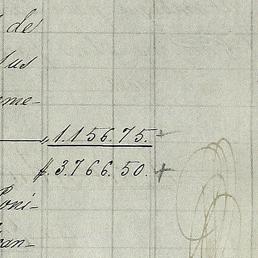 de
sus
me-
„ 1.156.75.
f. 3.766.50. +
Poni-